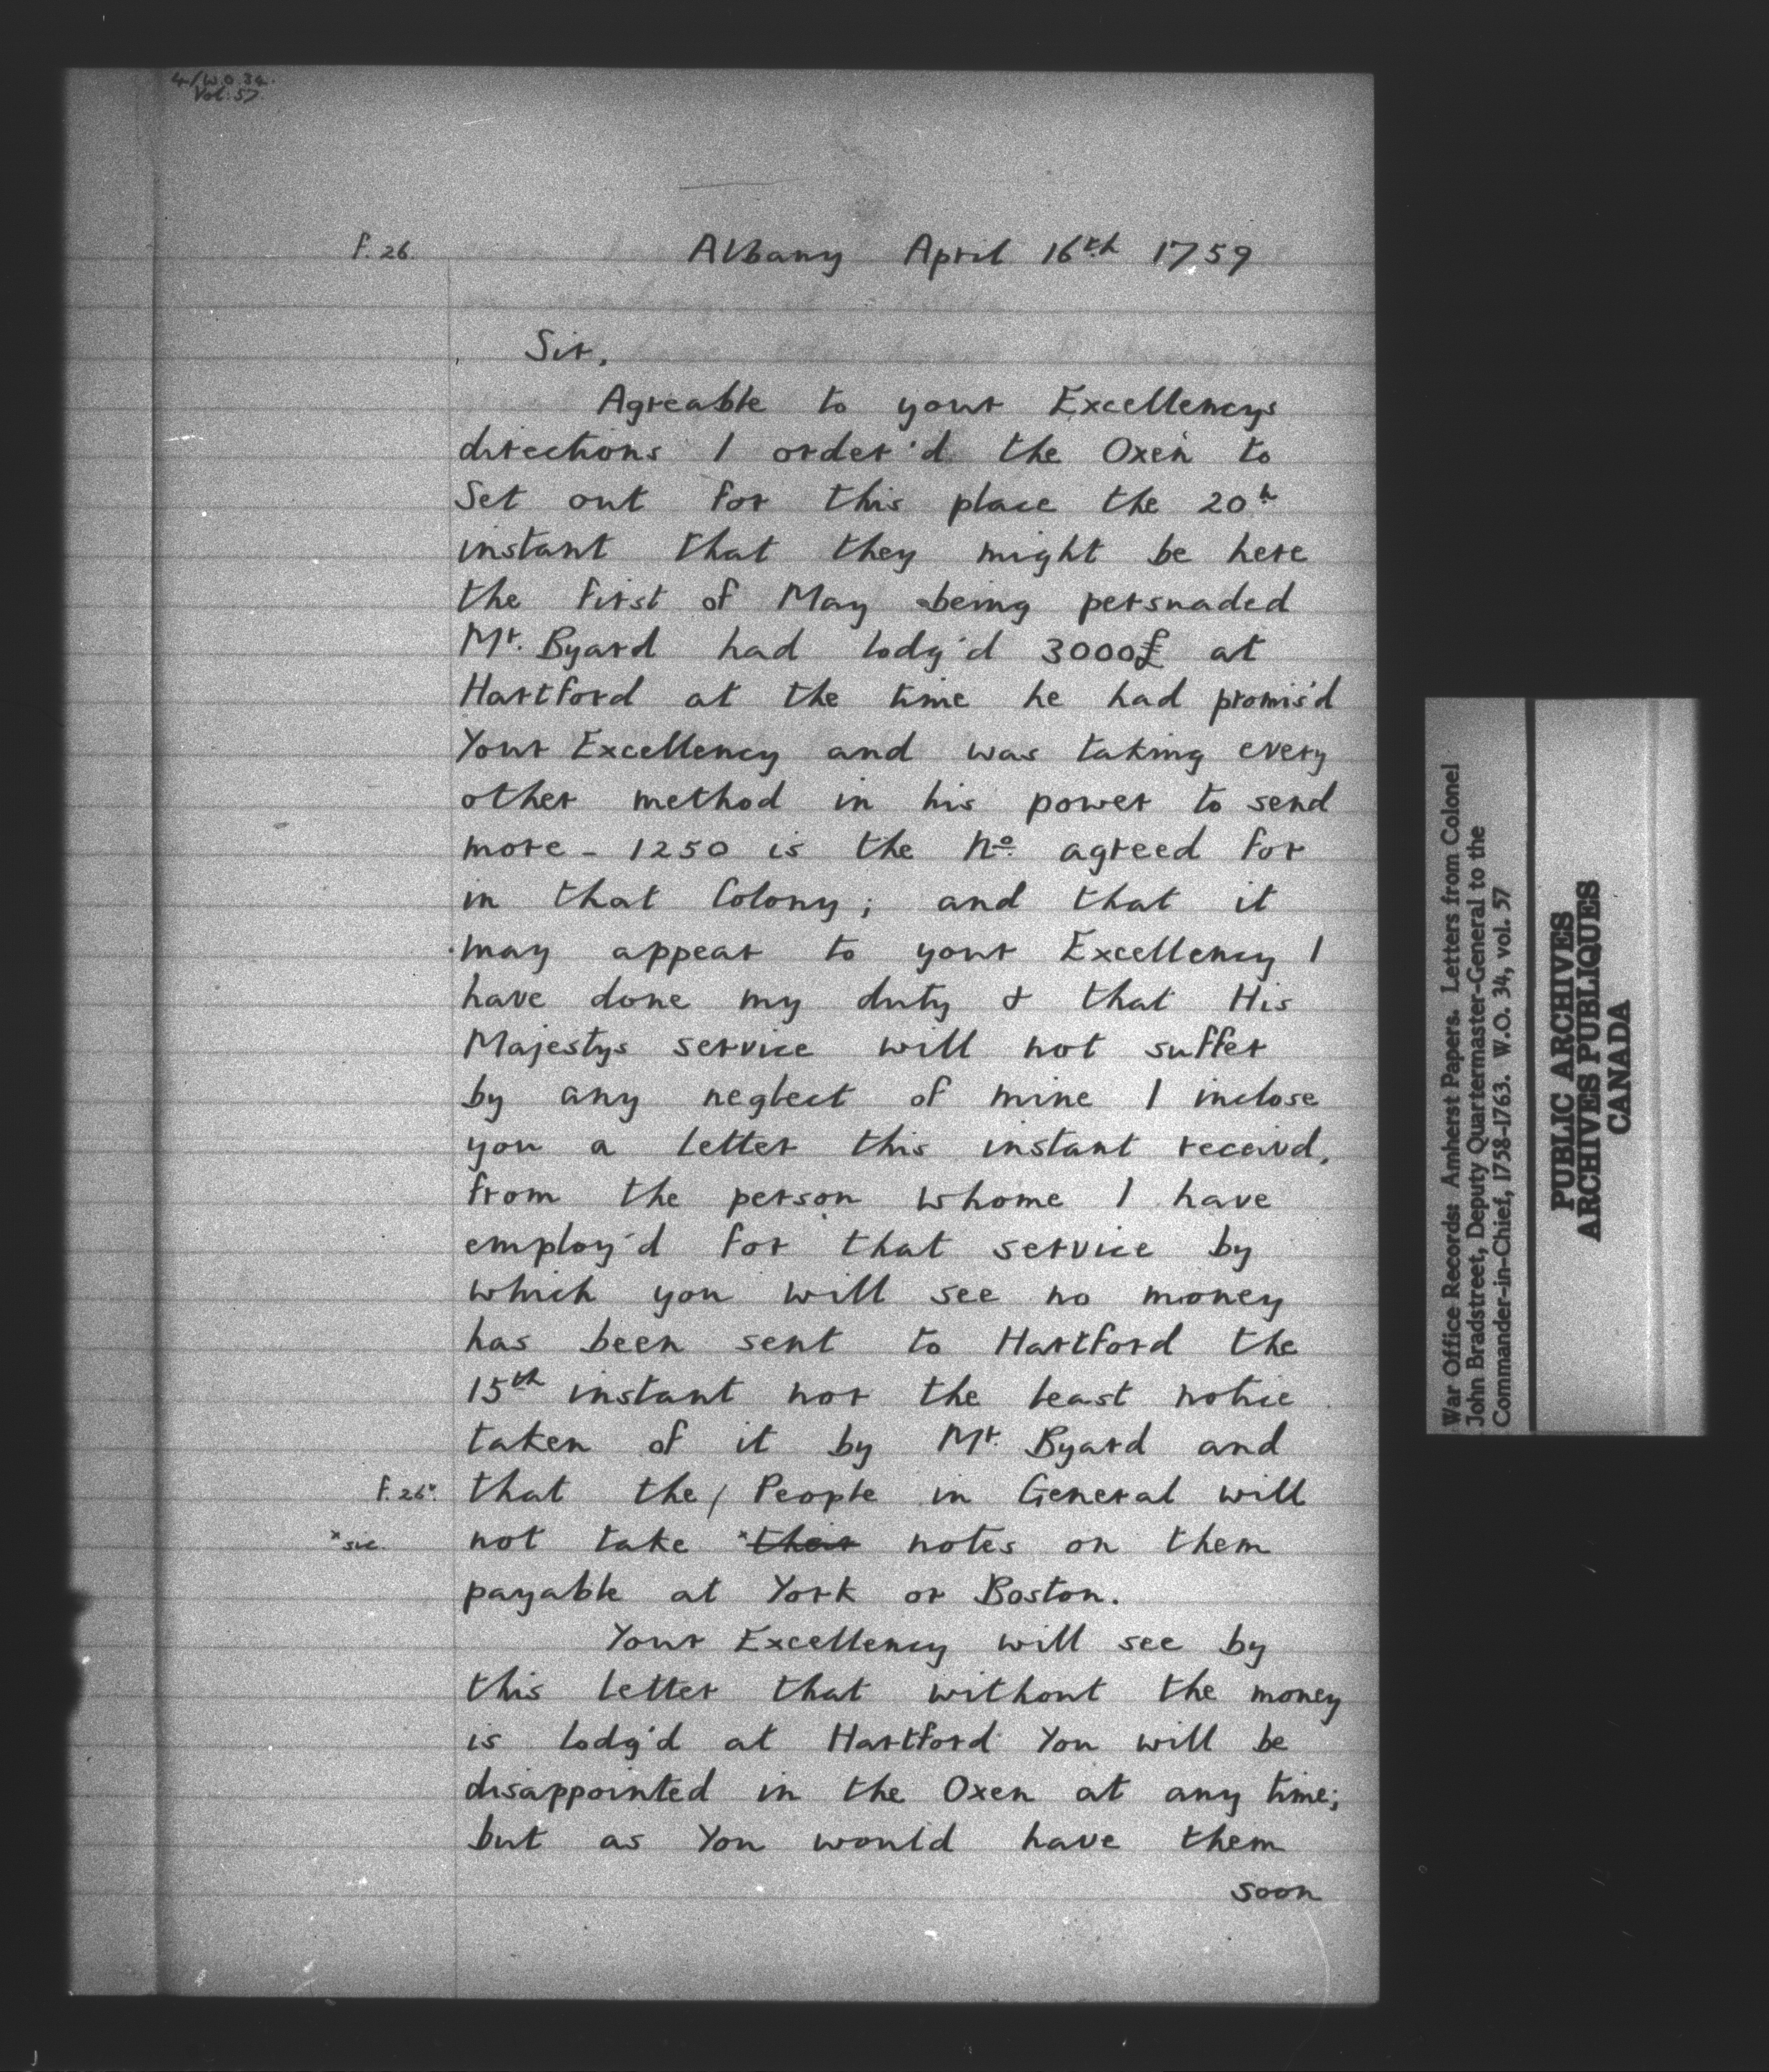 4/W.O.34.
Vol. 57.
f. 26.
Albany April 16th 1759
Sir,
Agreable to your Excellencys
directions I order'd the Oxen to
Set out for this place the 20h
instant that they might be here
the first of May being persuaded
Mr. Byard had lodg'd 3000£ at
Hartford at the time he had promis'd
Your Excellency and was taking every
other method in his power to send
more - 1250 is the No. agreed for
in that Colony; and that it
may appear to your Excellency I
have done my duty & that His
Majestys service will not suffer
by any neglect of mine I inclose
you a letter this instant receivd,
from the person whome I have
employ'd for that service by
which you will see no money
has been sent to Hartford the
15th instant nor the least notice
taken of it by Mr. Byard and
f. 26v. that the / People in General will
x sic. not take x their notes on them
payable at York or Boston.
Your Excellency will see by
this letter that without the money
is lodg'd at Hartford You will be
disappointed in the Oxen at any time;
but as You would have them
soon
War Office Records: Amherst Papers. Letters from Colonel
John Bradstreet, Deputy Quartermaster-General to the
Commander-in-Chief, 1758-1763. W.O. 34, vol. 57
PUBLIC ARCHIVES
ARCHIVES PUBLIQUES
CANADA